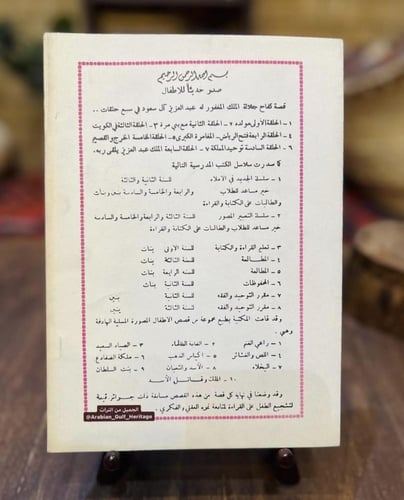 بسم الله الرحمن الرحيم
صدر حديثاً للأطفال
قصة كفاح جلالة الملك المغفور له عبد العزيز آل سعود في سبع حلقات ..
١ - الحلقة الاولى مولده ٢ - الحلقة الثانية مع بني مرة ٣ - الحلقة الثالثة في الكويت
٤ - الحلقة الرابعة فتح الرياض . المغامرة الكبرى ٥ - الحلقة الخامسة الخرج و القصيم
٦ - الحلقة السادسة توحيد المملكة ٧ - الحلقة السابعة الملك عبد العزيز يلقى ربه .
كما صدرت سلاسل الكتب المدرسية التالية
١ - سلسلة الجديد في الاملاء للسنة الثانية والثالثة
خير مساعد للطلاب والرابعة والخامسة والسادسة بنين وبنات
والطالبات على الكتابة والقراءة
٢ - سلسلة التعبير المصور للسنة الثالثة والرابعة والخامسة والسادسة
خير مساعد للطلاب والطالبات على الكتابة والقراءة
٣ - تعليم القراءة والكتابة للسنة الاولى بنات
٤ - المطالعة للسنة الثالثة بنات
٥ - المطالعة للسنة الرابعة بنات
٦ - المحفوظات للسنة الثانية بنات
٧ - مقرر التوحيد والفقه للسنة الثانية بنين
٨ - مقرر التوحيد والفقه للسنة الثالثة بنين
وقد قامت المكتبة بطبع مجموعة من قصص الاطفال المصورة المسلية الهادفة
وهي .
١ - راعي الغنم ٢ - العاهلة ٣ - الصياد السعيد
٤ - اللص والعشائر ٥ - اكياس الذهب ٦ - مملكة الضفادع
٧ - البخلاء ٨ - الأسد والثعبان ٩ - بنت السلطان
١٠ - الملك وقاتل الأسد
وقد وضعنا في نهاية كل قصة من هذه القصص مسابقة ذات جوائز قيمة
لتشجيع الطفل على القراءة لمتابعة نموه العقلي والفكري .
الجميل من التراث
@Arabian_Gulf_Heritage